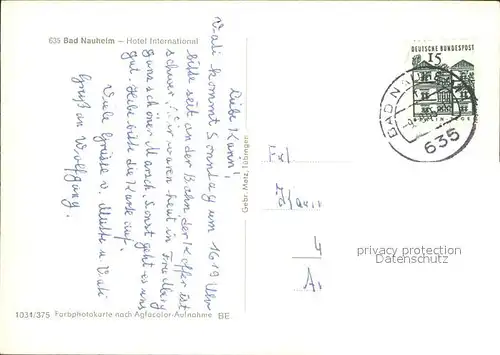 635 Bad Nauheim – Hotel International
Liebe Karin!
Vati kommt Sonntag um 16.19 Uhr
bitte seid an der Bahn, der Koffer ist
schwer. Wir waren heut in Friedberg
ganz schöner Marsch. Sonst geht es uns
gut. Hebe bitte die Karte auf.
Viele Grüsse v. Mutti u Vati
Gruß an Wolfgang.
Gebr. Metz, Tübingen
1031/375 Farbphotokarte nach Agfacolor-Aufnahme BE
DEUTSCHE BUNDESPOST
15
BAD NAUHEIM
635
Frl.
Karin
privacy protection
Datenschutz